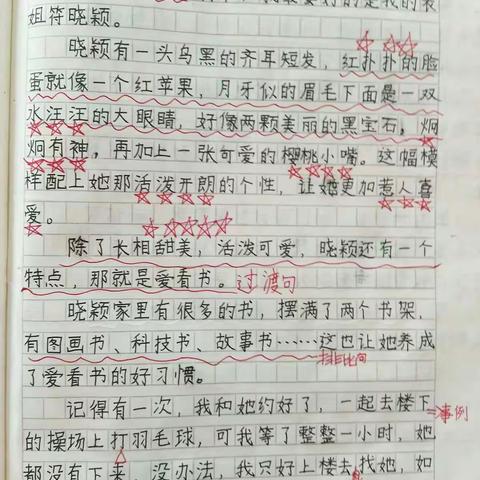 姐符晓颖。
晓颖有一头乌黑的齐耳短发，红扑扑的脸
蛋就像一个红苹果，月牙似的眉毛下面是一双
水汪汪的大眼睛，好像两颗美丽的黑宝石，炯
炯有神，再加上一张可爱的樱桃小嘴。这幅模
样配上她那活泼开朗的个性，让她更加惹人喜
爱。
除了长相甜美，活泼可爱，晓颖还有一个
特点，那就是爱看书。过渡句
晓颖家里有很多的书，摆满了两个书架，
有图画书、科技书、故事书……这也让她养成
排比句
了爱看书的好习惯。
记得有一次，我和她约好了，一起去楼下
⇒事例
的操场上打羽毛球，可我等了整整一小时，她
都没有下来，没办法，我只好上楼去找她，如